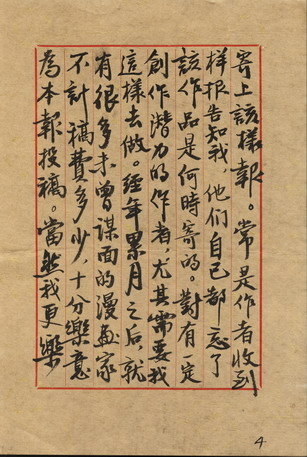 寄上該樣報。常是作者收到
樣報告知我，他們自己都忘了
該作品是何時寄的。對有一定
創作潛力的作者，尤其需要我
這樣去做。經年累月之后，就
有很多未曾謀面的漫画家
不計稿費多少，十分樂意
為本報投稿。當然我更樂
4